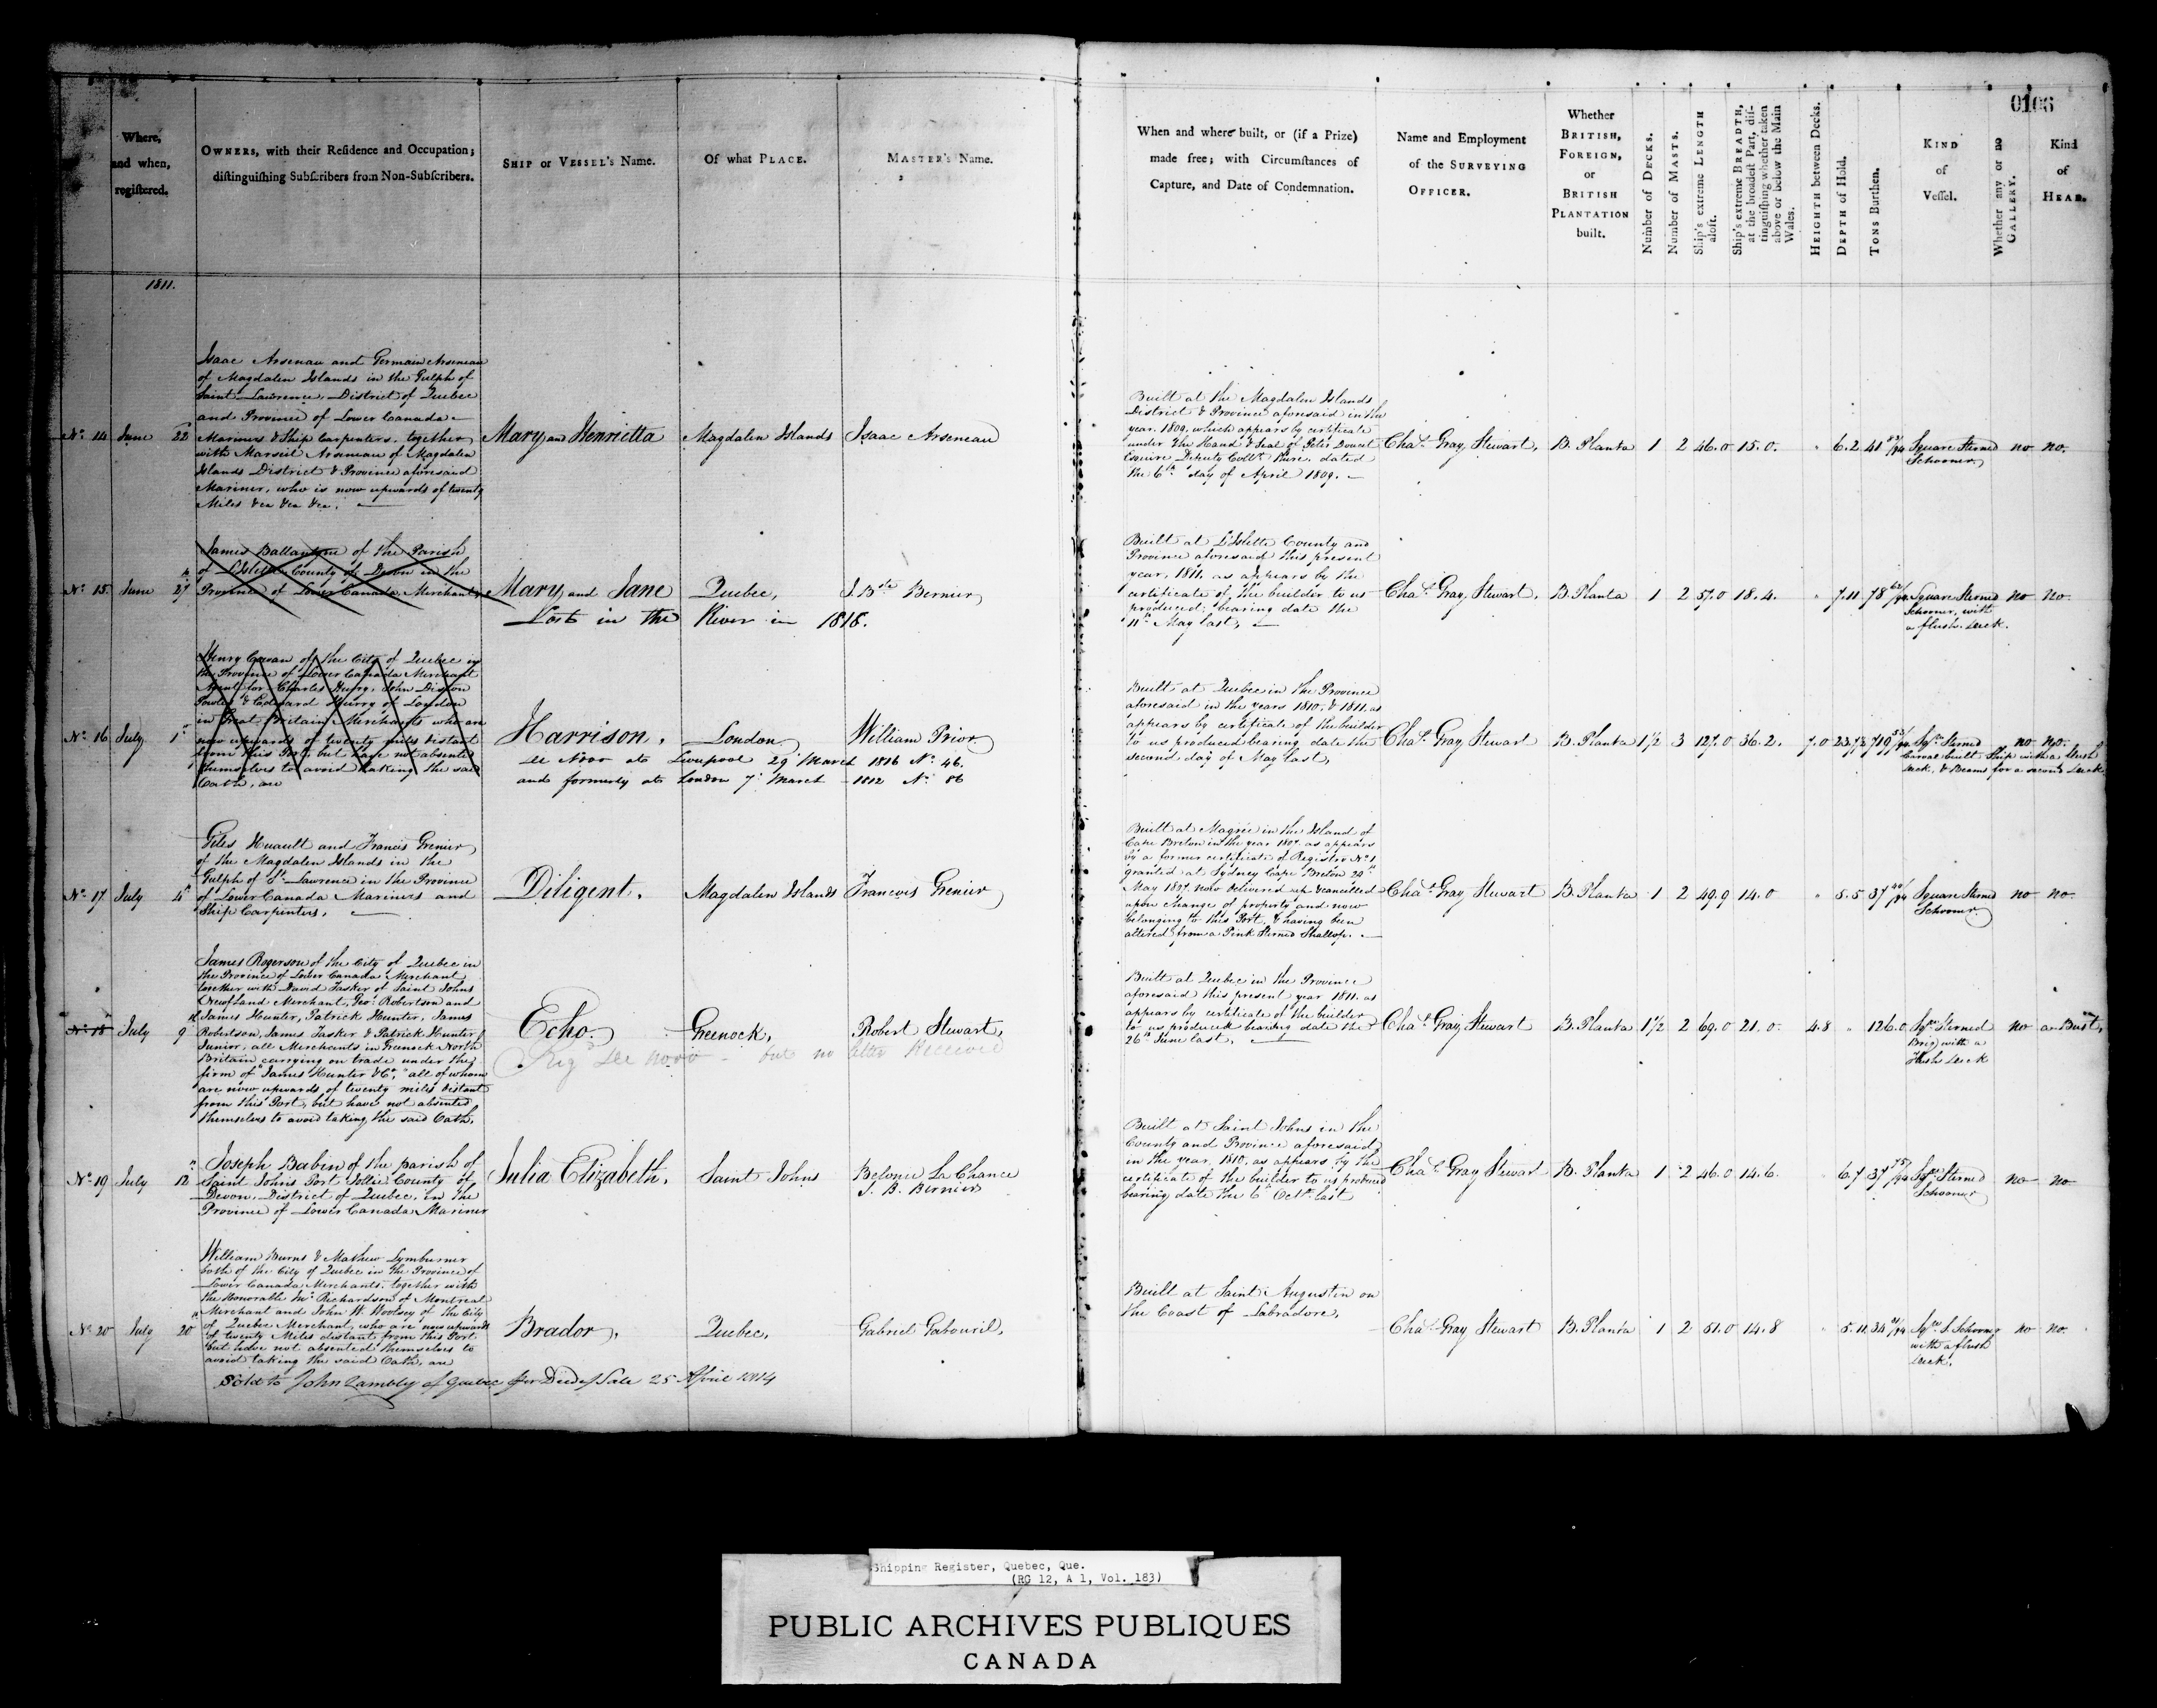 0106
Where,
and when,
registered.
OWNERS, with their Residence and Occupation;
distinguishing Subscribers from Non-Subscribers.
SHIP or VESSEL's Name.
Of what PLACE.
MASTER's Name.
When and where built, or (if a Prize)
made free; with Circumstances of
Capture, and Date of Condemnation.
Name and Employment
of the SURVEYING
OFFICER.
Whether
BRITISH,
FOREIGN,
or
BRITISH
PLANTATION
built.
Number of DECKS.
Number of MASTS.
Ship's extreme LENGTH
aloft.
Ship's extreme BREADTH,
at the broadest Part, dis-
tinguishing whether taken
above or below the Main
Wales.
HEIGHTH between Decks.
DEPTH of Hold.
TONS Burthen.
KIND
of
Vessel.
Whether any or no
GALLERY.
Kind
of
HEAD.
1811.
No. 14 June 22
Isaac Arsenau and Germain Arseneau
of Magdalen Islands in the Gulph of
Saint Lawrence, District of Quebec
and Province of Lower Canada
Mariners & Ship Carpenters, together
with Marsiit Arseneau of Magdalen
Islands District & Province aforesaid
Mariner, who is now upwards of twenty
Miles &ca &ca &ca.
Mary and Henrietta
Magdalen Islands
Isaac Arseneau
Built at the Magdalen Islands
District & Province aforesaid in the
year 1809, which appears by certificate
under the Hand & Seal of Peter Doucet
Esquire Deputy Collr. there, dated
the 6th day of April 1809.
Chas. Gray Stewart,
B. Planta 1 2 46.0 15.0. " 6.2 41 /94
Square Sterned
Schooner,
no no.
No. 15. June 27
James Ballantyne of the Parish
of L'Islette County of Devon in the
Province of Lower Canada, Merchant,
Mary and Jane
Quebec,
J. Bte. Bernier
Lost in the River in 1818.
Built at L'Islette County and
Province aforesaid this present
year, 1811, as appears by the
certificate of the builder to us
produced; bearing date the
11th May last,
Chas. Gray Stewart,
B. Planta 1 2 57.0 18.4. " 7.11 78 /94
Square Sterned
Schooner, with
a flush deck.
no no.
No. 16 July 1st
Henry Cowan of the City of Quebec in
the Province of Lower Canada Merchant
Agent for Charles Hurry, John Diston
Powles & Edward Hurry of London
in Great Britain Merchants who are
now upwards of twenty miles distant
from this Port, but have not absented
themselves to avoid taking the said
Oath, are
Harrison,
London
William Prior
see Novo at Liverpool 29 March 1816 No. 46.
and formerly at London 7 March 1812 No. 86
Built at Quebec in the Province
aforesaid in the years 1810, & 1811, as
appears by certificate of the builder
to us produced bearing date the
second day of May last,
Chas. Gray Stewart
B. Planta 1½ 3 127.0 36.2. 7.0 719 /94
Sqre. Sterned
Carval built Ship with a flush
deck, & Beams for a second Deck.
no no.
No. 17 July 4th
Giles Huault and Francis Grenier
of the Magdalen Islands in the
Gulph of St. Lawrence in the Province
of Lower Canada Mariners and
Ship Carpenters,
Diligent.
Magdalen Islands
Francois Grenier
Built at Magrée in the Island of
Cape Breton in the year 1807, as appears
by a former certificate of Registry No. 1
granted at Sydney Cape Breton 29th
May 1807, now delivered up & cancelled
upon change of property and now
belonging to this Port, & having been
altered from a Pink Sterned Shallop.
Chas. Gray Stewart
B. Planta 1 2 49.9 14.0 " 5.5 37 /94
Square Sterned
Schooner
no no.
No. 18 July 9
James Rogerson of the City of Quebec in
the Province of Lower Canada Merchant
together with David Tasker of Saint Johns
Newfland Merchant, Geo. Robertson and
James Hunter, Patrick Hunter, James
Robertson, James Tasker & Patrick Hunter
Junior, all Merchants in Greenock North
Britain carrying on trade under the
firm of "James Hunter & Co," all of whom
are now upwards of twenty miles distant
from this Port, but have not absented
themselves to avoid taking the said Oath.
Echo.
Greenock,
Robert Stewart,
Reg see novo but no letter Received
Built at Quebec in the Province
aforesaid this present year 1811, as
appears by certificate of the builder
to us produced bearing date the
26th June last,
Chas. Gray Stewart
B. Planta 1½ 2 69.0 21.0. 4.8 " 126.0
Sqre. Sterned
Brig, with a
flush deck
no a Bust,
No. 19 July 12
Joseph Babin of the parish of
Saint Johns Port Jollie County of
Devon, District of Quebec, in the
Province of Lower Canada, Mariner
Julia Elizabeth.
Saint Johns
Belonie La Chance
J. B. Bernier
Built at Saint Johns in the
County and Province aforesaid
in the year, 1810, as appears by the
certificate of the builder to us produced
bearing date the 6th Octr. last
Chas. Gray Stewart
B. Planta 1 2 46.0 14.6. 6.7 37 /94
Sqre. Sterned
Schooner
no no
No. 20 July 20th
William Burns & Mathew Lymburner
both of the City of Quebec in the Province of
Lower Canada, Merchants, together with
the Honorable Jno. Richardson of Montreal
Merchant and John W. Woolsey of the City
of Quebec Merchant, who are now upwards
of twenty Miles distant from this Port
but have not absented themselves to
avoid taking the said Oath, are
Brador,
Quebec,
Gabriel Gabouril,
Sold to John Lambly of Quebec per Deed of Sale 25 April 1814
Built at Saint Augustin on
the Coast of Labradore,
Chas. Gray Stewart
B. Planta 1 2 51.0 14.8 " 5.11 34 /94
Sqre. S. Schooner
with a flush
deck.
no no.
Shipping Register, Quebec, Que.
(RG 12, A 1, Vol. 183)
PUBLIC ARCHIVES PUBLIQUES
CANADA